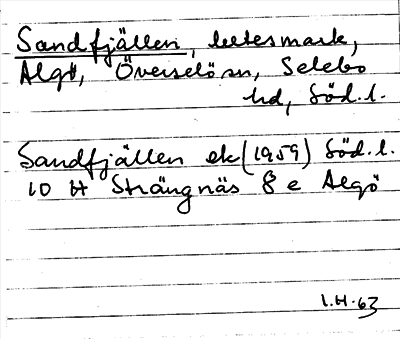 Sandfjällen, betesmark,
Algö, Överselö sn, Selebo
hd, Söd.l.
Sandfjällen ek (1959) Söd.l.
10 H Strängnäs 8 e Algö
I.H. 63